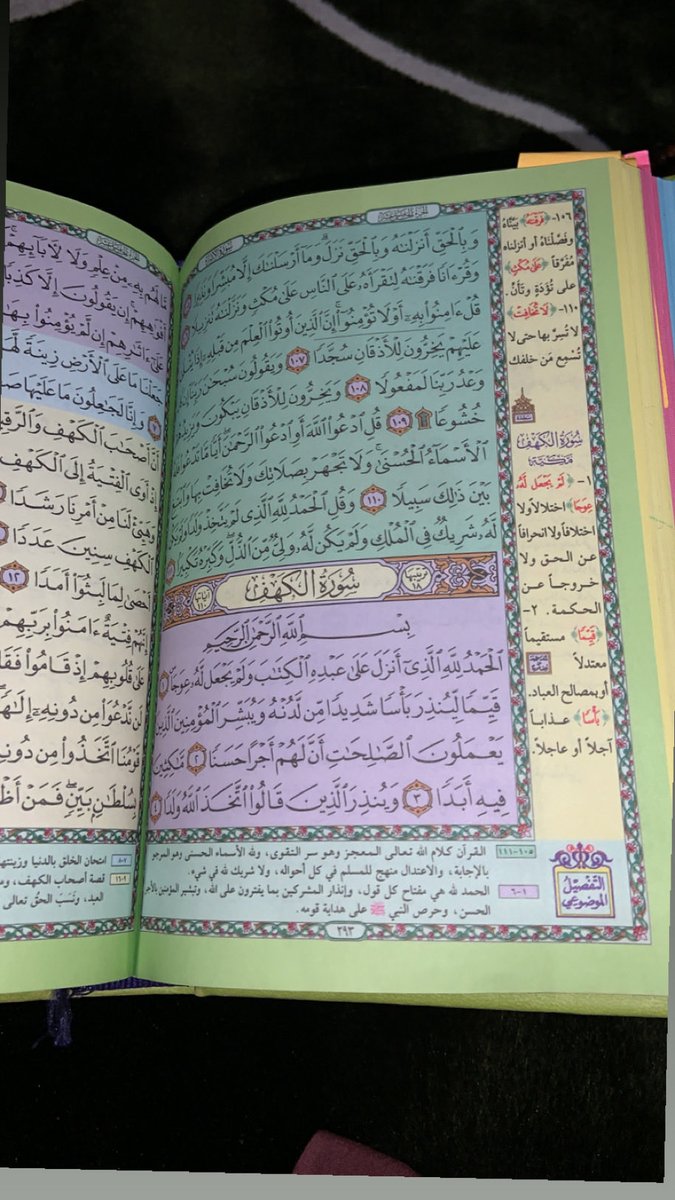 وَبِالْحَقِّ أَنزَلْنَاهُ وَبِالْحَقِّ نَزَلَ وَمَا أَرْسَلْنَاكَ إِلَّا مُبَشِّرًا وَنَذِيرًا
وَقُرْءَانًا فَرَقْنَاهُ لِتَقْرَأَهُ عَلَى النَّاسِ عَلَى مُكْثٍ وَنَزَّلْنَاهُ تَنزِيلًا
قُلْ ءَامِنُوا بِهِ أَوْ لَا تُؤْمِنُوا إِنَّ الَّذِينَ أُوتُوا الْعِلْمَ مِن قَبْلِهِ إِذَا يُتْلَى
عَلَيْهِمْ يَخِرُّونَ لِلْأَذْقَانِ سُجَّدًا ١٠٧ وَيَقُولُونَ سُبْحَانَ رَبِّنَا إِن كَانَ
وَعْدُ رَبِّنَا لَمَفْعُولًا ١٠٨ وَيَخِرُّونَ لِلْأَذْقَانِ يَبْكُونَ وَيَزِيدُهُمْ
خُشُوعًا ۩ ١٠٩ قُلِ ادْعُوا اللَّهَ أَوِ ادْعُوا الرَّحْمَنَ أَيًّا مَّا تَدْعُوا فَلَهُ
الْأَسْمَاءُ الْحُسْنَى وَلَا تَجْهَرْ بِصَلَاتِكَ وَلَا تُخَافِتْ بِهَا وَابْتَغِ
بَيْنَ ذَلِكَ سَبِيلًا ١١٠ وَقُلِ الْحَمْدُ لِلَّهِ الَّذِي لَمْ يَتَّخِذْ وَلَدًا وَلَمْ يَكُن
لَّهُ شَرِيكٌ فِي الْمُلْكِ وَلَمْ يَكُن لَّهُ وَلِيٌّ مِّنَ الذُّلِّ وَكَبِّرْهُ تَكْبِيرًا
ترتيبها ١٨ سُورَةُ الْكَهْفِ آياتها ١١٠
بِسْمِ اللَّهِ الرَّحْمَنِ الرَّحِيمِ
الْحَمْدُ لِلَّهِ الَّذِي أَنزَلَ عَلَى عَبْدِهِ الْكِتَابَ وَلَمْ يَجْعَل لَّهُ عِوَجًا ١
قَيِّمًا لِّيُنذِرَ بَأْسًا شَدِيدًا مِّن لَّدُنْهُ وَيُبَشِّرَ الْمُؤْمِنِينَ الَّذِينَ
يَعْمَلُونَ الصَّالِحَاتِ أَنَّ لَهُمْ أَجْرًا حَسَنًا ٢ مَّاكِثِينَ
فِيهِ أَبَدًا ٣ وَيُنذِرَ الَّذِينَ قَالُوا اتَّخَذَ اللَّهُ وَلَدًا ٤
١٠٦- ﴿فَرَقْنَاهُ﴾ بيّنّاه
وفصّلناه أو أنزلناه
مُفرّقاً ﴿عَلَى مُكْثٍ﴾
على تُؤَدَةٍ وتأنٍّ.
١١٠- ﴿لَا تُخَافِتْ﴾
لا تُسِرَّ بها حتى لا
تُسْمِع مَن خلفك
سُورَةُ الْكَهْفِ
مكيّة
١- ﴿لَمْ يَجْعَل لَّهُ
عِوَجًا﴾ اختلالاً ولا
اختلافاً ولا انحرافاً
عن الحق ولا
خروجاً عن
الحكمة. ٢-
﴿قَيِّمًا﴾ مستقيماً
معتدلاً
أو بمصالح العباد.
﴿بَأْسًا﴾ عذاباً
آجلاً أو عاجلاً.
١٠٥-١١١ القرآن كلام الله تعالى المعجز وهو سر التقوى، ولله الأسماء الحسنى وهو المرجو
بالإجابة، والاعتدال منهج للمسلم في كل أحواله، ولا شريك لله في شيء.
١-٦ الحمد لله هي مفتاح كل قول، وإنذار المشركين بما يفترون على الله، وتبشير المؤمنين بالأجر
الحسن، وحرص النبي ﷺ على هداية قومه.
التفصيل
الموضوعي
٢٩٣
مَّا لَهُم بِهِ مِنْ عِلْمٍ وَلَا لِآبَائِهِمْ
أَفْوَاهِهِمْ إِن يَقُولُونَ إِلَّا كَذِبًا
عَلَى ءَاثَارِهِمْ إِن لَّمْ يُؤْمِنُوا بِهَذَا
جَعَلْنَا مَا عَلَى الْأَرْضِ زِينَةً لَّهَا
٧ وَإِنَّا لَجَاعِلُونَ مَا عَلَيْهَا
أَنَّ أَصْحَابَ الْكَهْفِ وَالرَّقِيمِ
إِذْ أَوَى الْفِتْيَةُ إِلَى الْكَهْفِ
وَهَيِّئْ لَنَا مِنْ أَمْرِنَا رَشَدًا
الْكَهْفِ سِنِينَ عَدَدًا
أَحْصَى لِمَا لَبِثُوا أَمَدًا ١٢
إِنَّهُمْ فِتْيَةٌ ءَامَنُوا بِرَبِّهِمْ
عَلَى قُلُوبِهِمْ إِذْ قَامُوا فَقَالُوا
لَن نَّدْعُوَا مِن دُونِهِ إِلَهًا
قَوْمُنَا اتَّخَذُوا مِن دُونِهِ
بِسُلْطَانٍ بَيِّنٍ فَمَنْ أَظْلَمُ
٧-٨ امتحان الخلق بالدنيا وزينتها
٩-١٦ قصة أصحاب الكهف،
العبد، ونَسَبَ الحقُّ تعالى